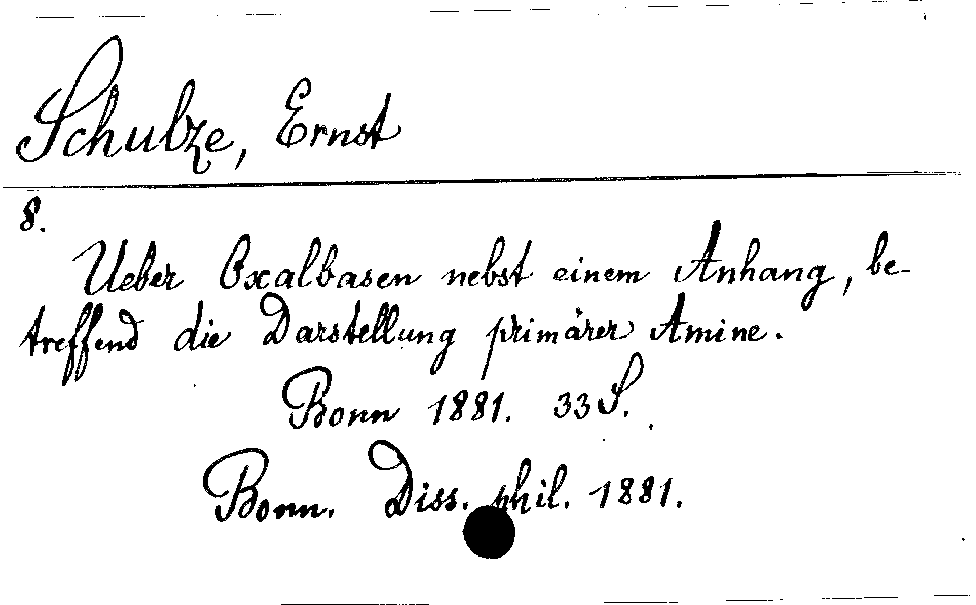 Schulze, Ernst
8.
Ueber Oxalbasen nebst einem Anhang, be-
treffend die Darstellung primärer Amine.
Bonn 1881. 33 S.
Bonn. Diss. phil. 1881.